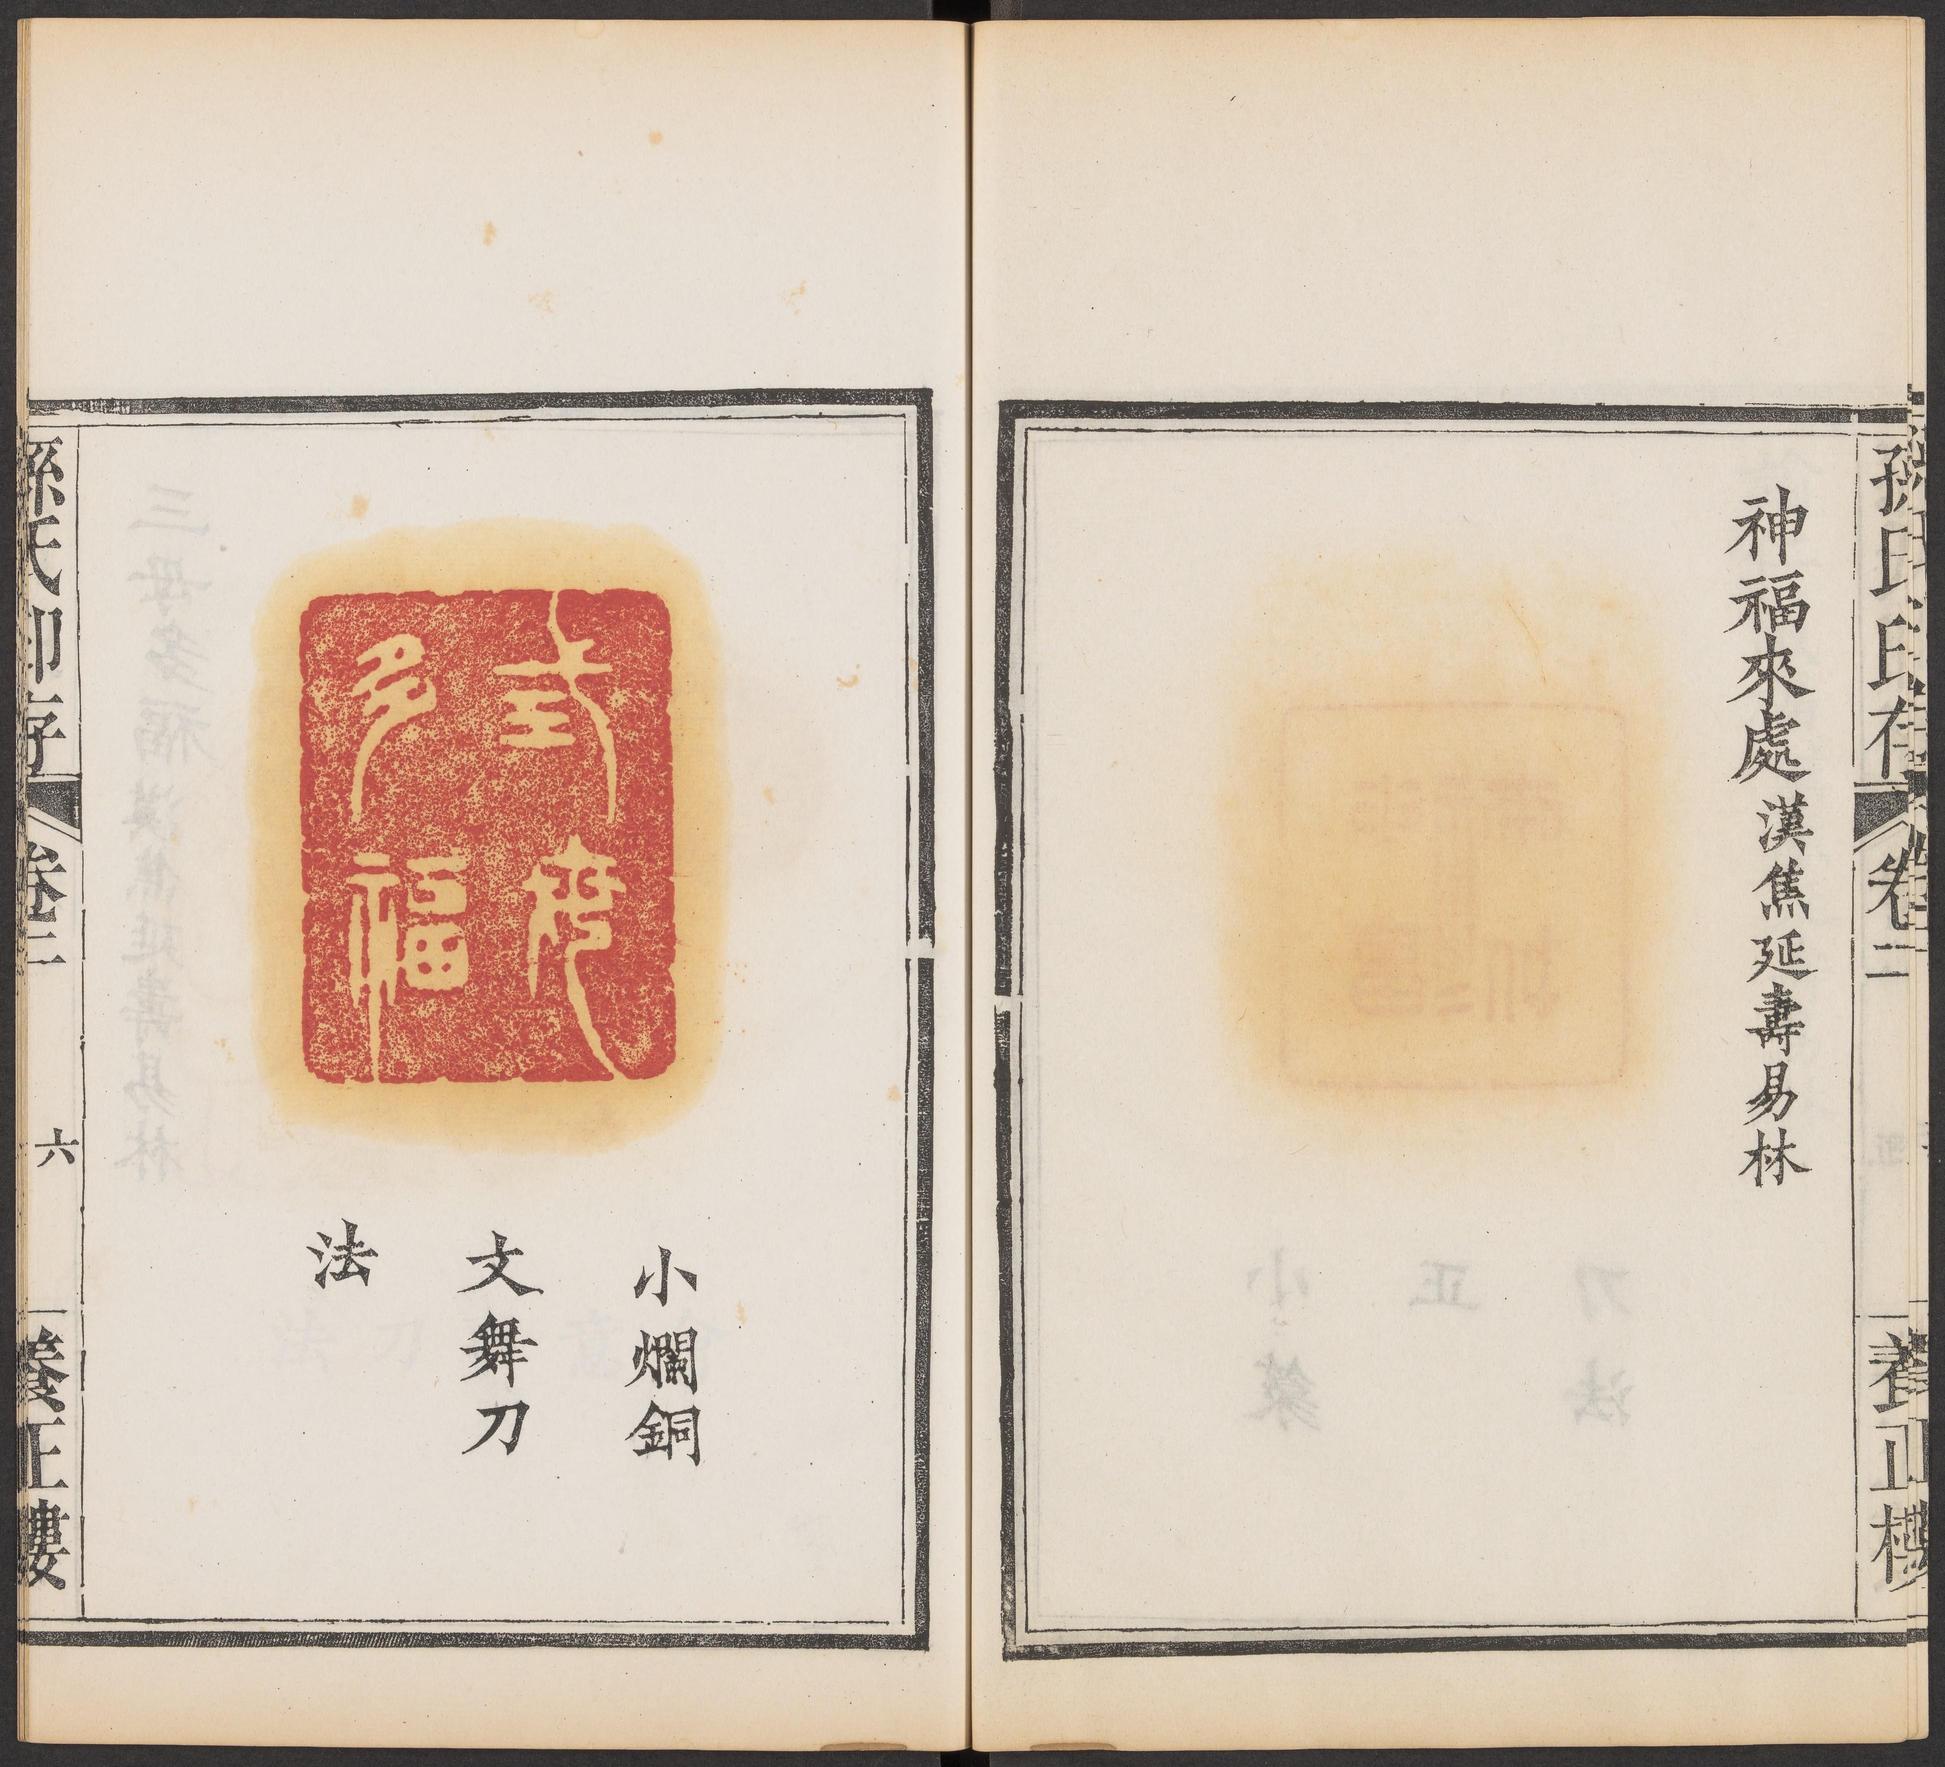 孫氏印存
卷二
養正樓
神福來處漢焦延壽易林
多福
小爛銅
文舞刀
法
孫氏印存
卷二
六
養正樓